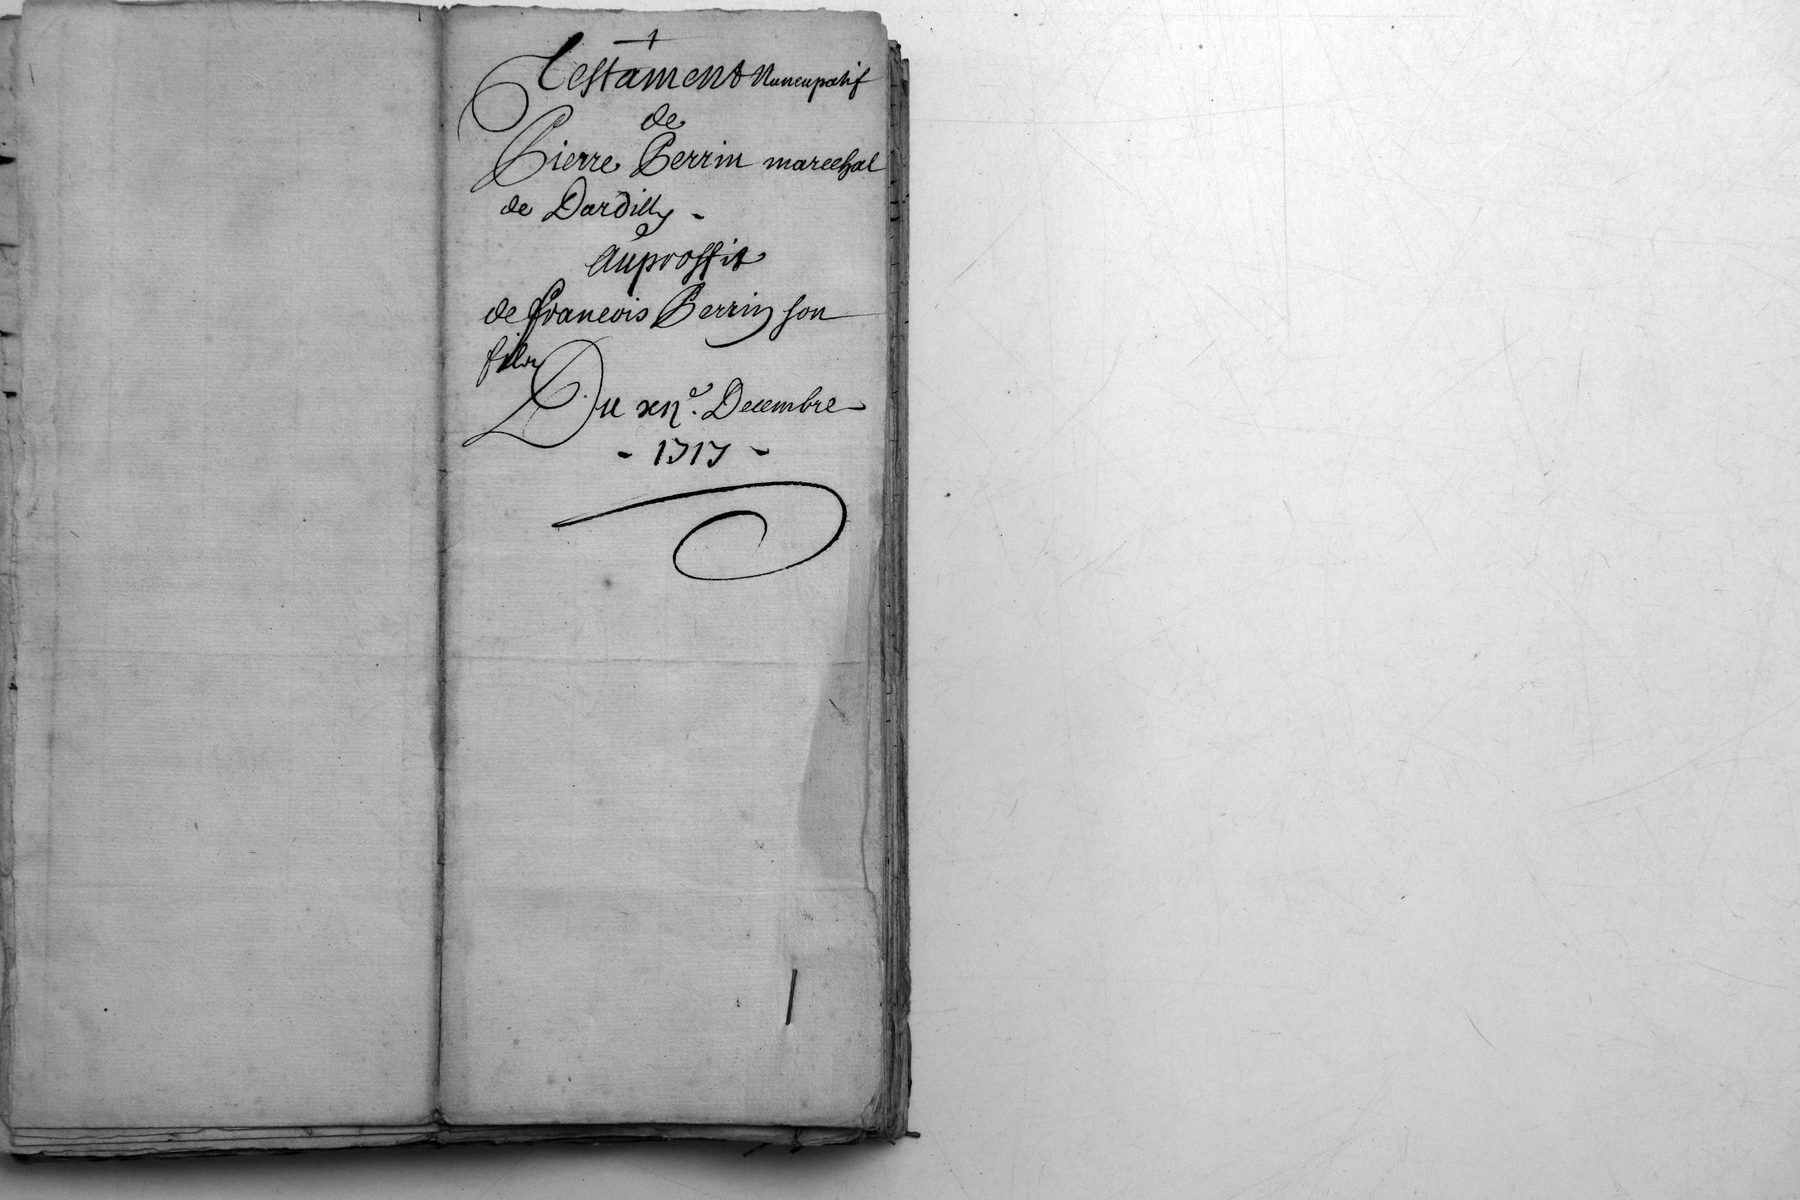 Testament Nuncupatif
de
Pierre Perrin marechal
de Dardilly -
Au proffit
de françois Perrin son
fils
Du xije. Decembre
- 1717 -